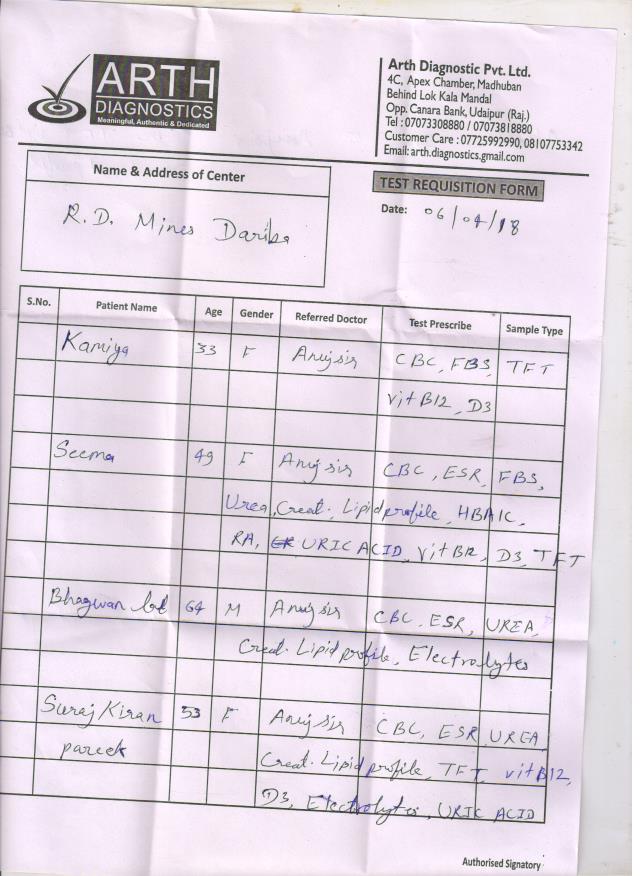 ARTH
DIAGNOSTICS
Meaningful, Authentic & Dedicated
Arth Diagnostic Pvt. Ltd.
4C, Apex Chamber, Madhuban
Behind Lok Kala Mandal
Opp. Canara Bank, Udaipur (Raj.)
Tel : 07073308880 / 07073818880
Customer Care : 07725992990, 08107753342
Email: arth.diagnostics.gmail.com
Name & Address of Center
R.D. Mines Dariba
TEST REQUISITION FORM
Date: 06/04/18
S.No. Patient Name Age Gender Referred Doctor Test Prescribe Sample Type
Kamiya 33 F Anuj sir CBC, FBS, TFT
vit B12, D3
Seema 49 F Anuj sir CBC, ESR, FBS,
Urea, Creat. Lipid profile, HBA1C,
RA, URIC ACID, Vit B12, D3, TFT
Bhagwan lal 64 M Anuj sir CBC, ESR, UREA,
Creat. Lipid profile, Electrolytes
Suraj Kiran 53 F Anuj sir CBC, ESR, UREA
pareek Creat. Lipid profile, TFT, vit B12,
D3, Electrolytes, URIC ACID
Authorised Signatory